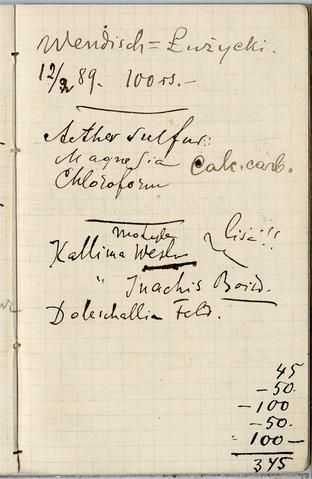 Wendisch = Łużycki.
12/2 89. 100 rs. —
Aether sulfur:
Magnesia Calc. carb.
Chloroform
motyle liść!!
Kallima
" Inachis Boisd.
Doleschallia Feld.
45
— 50.
— 100
— 50.
100 —
345